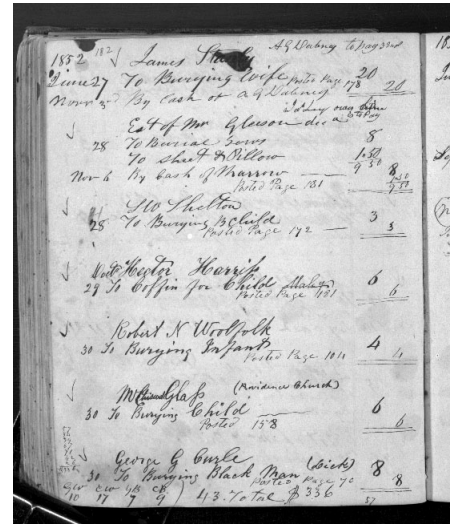 1852 182 James A G Dabney to Pay
June 27 To Burying Wife Posted Page 178 20
Novr By Cash of A G Dabney 20
Est of Mr Gleeson decd
28 To Burial 8
To Sheet & Pillow 1.50
9 50
Nov 6 By Cash of Marrow 8
Posted Page 131 1.50
9 50
S W Shelton
28 To Burying B Child 3
Posted Page 172 3
Hector Harriss
29 To Coffin for Child 6
Posted Page 131 6
Robert N Woolfolk
30 To Burying Infant 4
Posted Page 104 4
Glass (Providence Church)
30 To Burying Child 6
Posted 158 6
George G Curle (Sick)
30 To Burying Black Man 8
Posted Page 70 8
10 17 7 9 43. Total $336